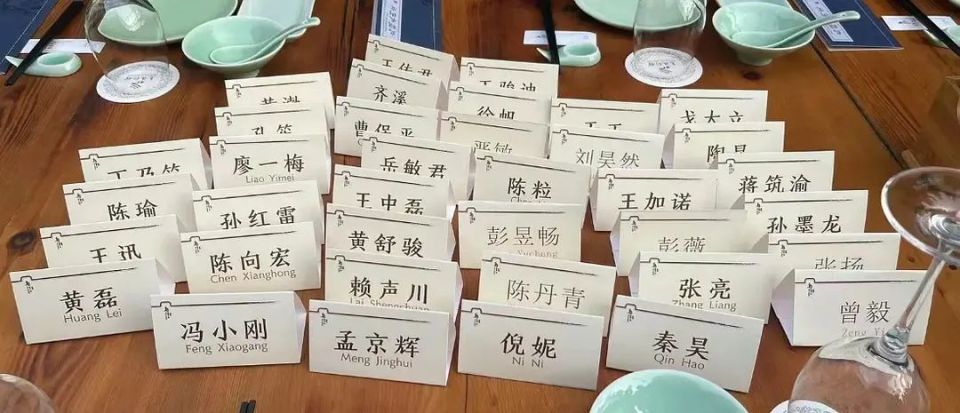 齐溪
徐帆
曹保平
严敏
刘昊然
戈大立
陶昆
孔笙
廖一梅
Liao Yimei
岳敏君
陈粒
王加诺
蒋筑渝
丁乃筝
陈瑜
孙红雷
王中磊
彭昱畅
Yuchang
彭薇
孙墨龙
王迅
陈向宏
Chen Xianghong
黄舒骏
张扬
赖声川
Lai Shengchuan
陈丹青
张亮
Zhang Liang
黄磊
Huang Lei
曾毅
Zeng Yi
冯小刚
Feng Xiaogang
孟京辉
Meng Jinghui
倪妮
Ni Ni
秦昊
Qin Hao